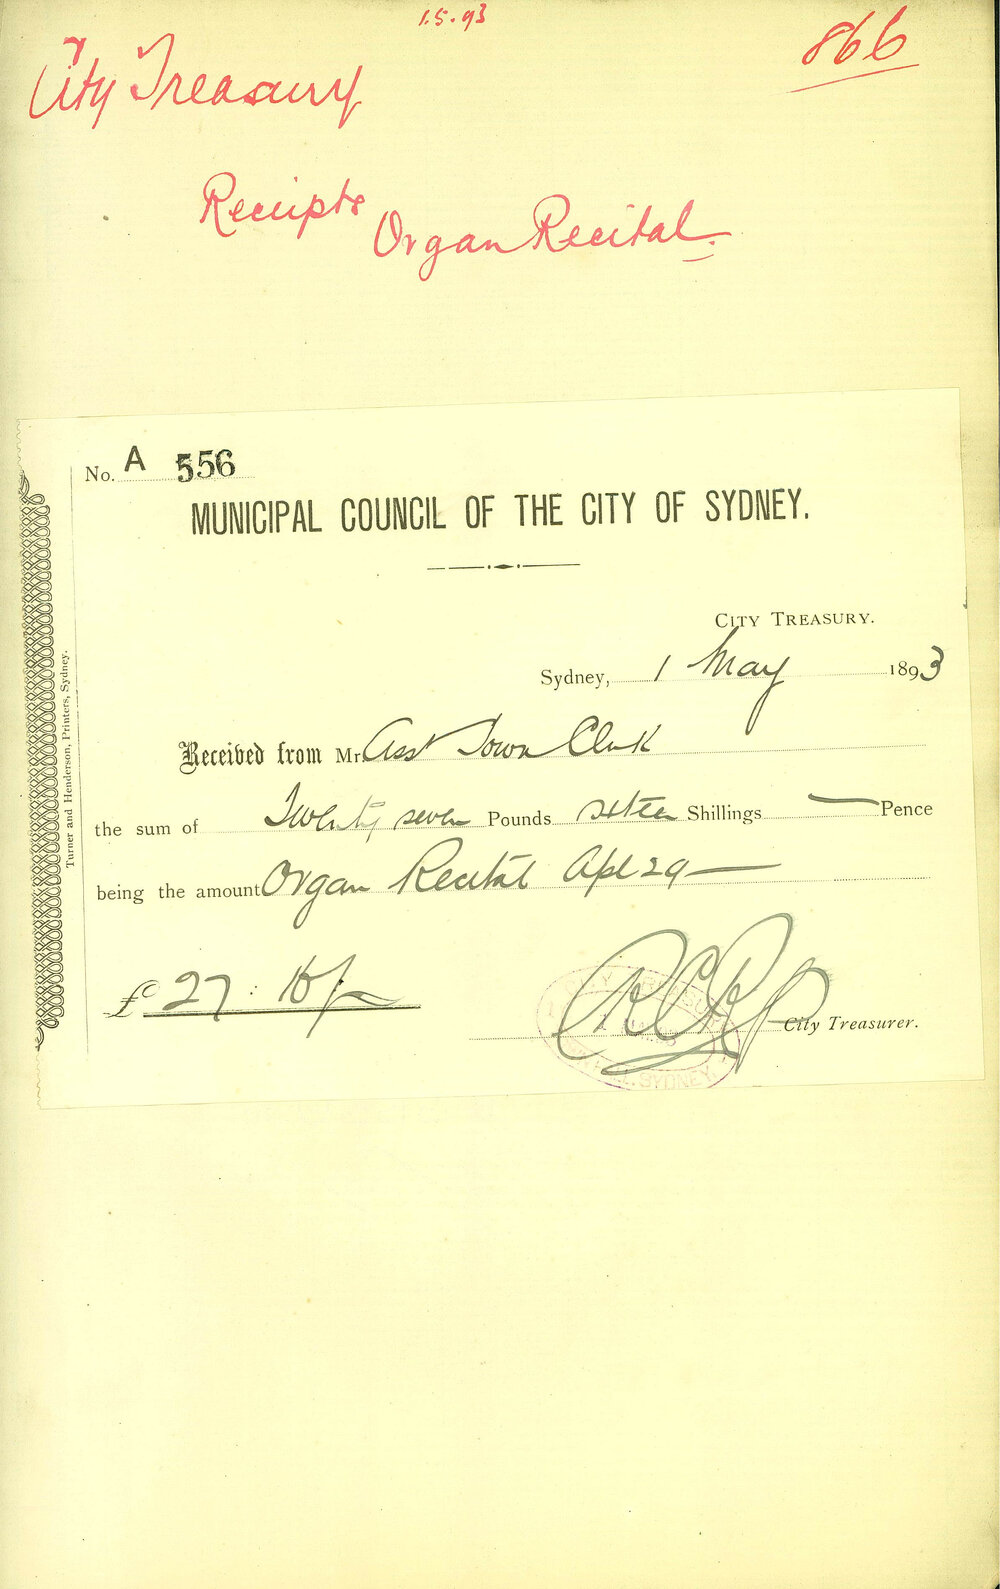 1.5.93
866
City Treasury
Receipts
Organ Recital.
No. A 556
MUNICIPAL COUNCIL OF THE CITY OF SYDNEY.
CITY TREASURY.
Sydney, 1 May 1893
Received from Mr. Asst Town Clerk
the sum of Twenty seven Pounds sixteen Shillings — Pence
being the amount Organ Recital Apl 29 —
£ 27 : 16/-
City Treasurer.
SYDNEY.
Turner and Henderson, Printers, Sydney.